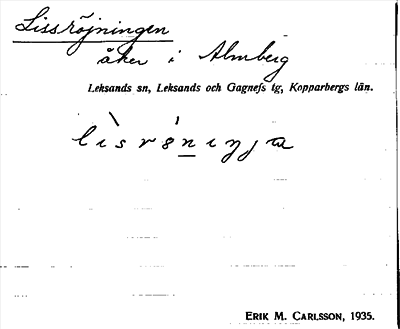 Lissröjningen
åker i Almberg
Leksands sn, Leksands och Gagnefs tg, Kopparbergs län.
ERIK M. CARLSSON, 1935.